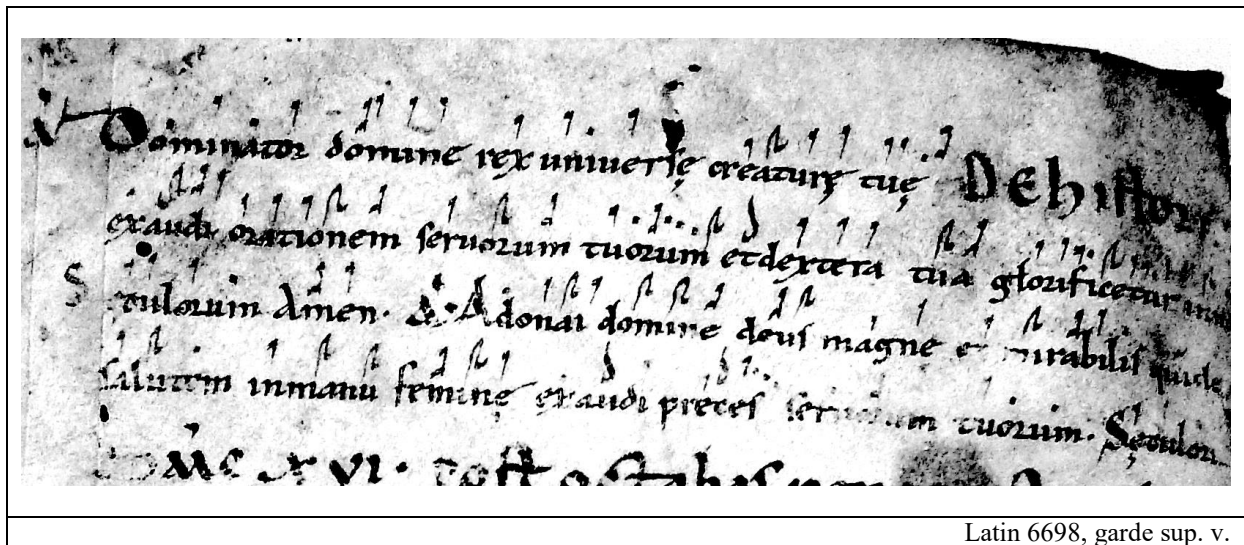 Dominator domine rex uniuersę creaturę tuę DE histor
exaudi orationem seruorum tuorum et dextera tua glorificetur
culorum Amen. Adonai domine deus magne et mirabilis quide
salutem inmanu feminę exaudi preces seruorum tuorum. Sęculor
Latin 6698, garde sup. v.